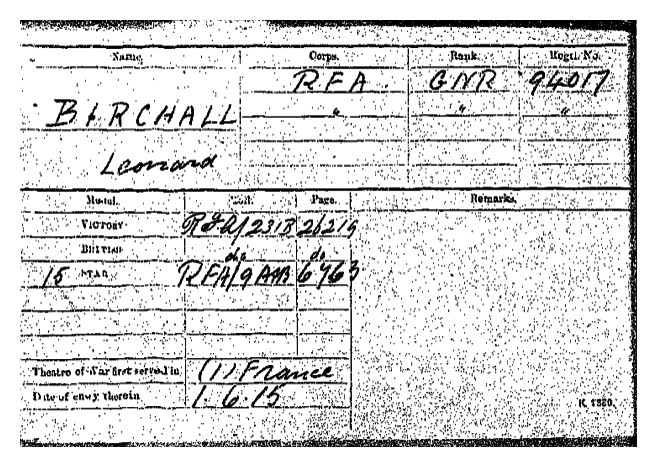 Name. Corps. Rank. Regtl. No.
RFA GNR 94017
BIRCHALL " " "
Leonard
Medal. Roll. Page. Remarks.
VICTORY RFA/231B 26219
BRITISH do do
15 STAR RFA/9A 6763
Theatre of War first served in (1) France
Date of entry therein 1.6.15
K. 1380.